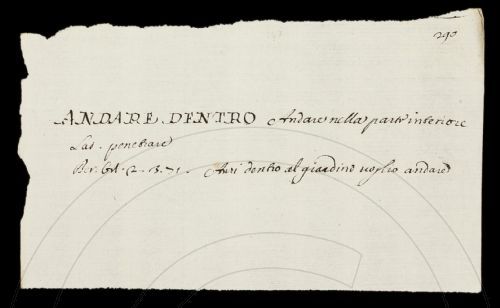 290
ANDARE DENTRO Andare nella parte interiore
Lat. penetrare
Ber. Orl. 2. 3. 31. Avi dentro al giardino voglio andare